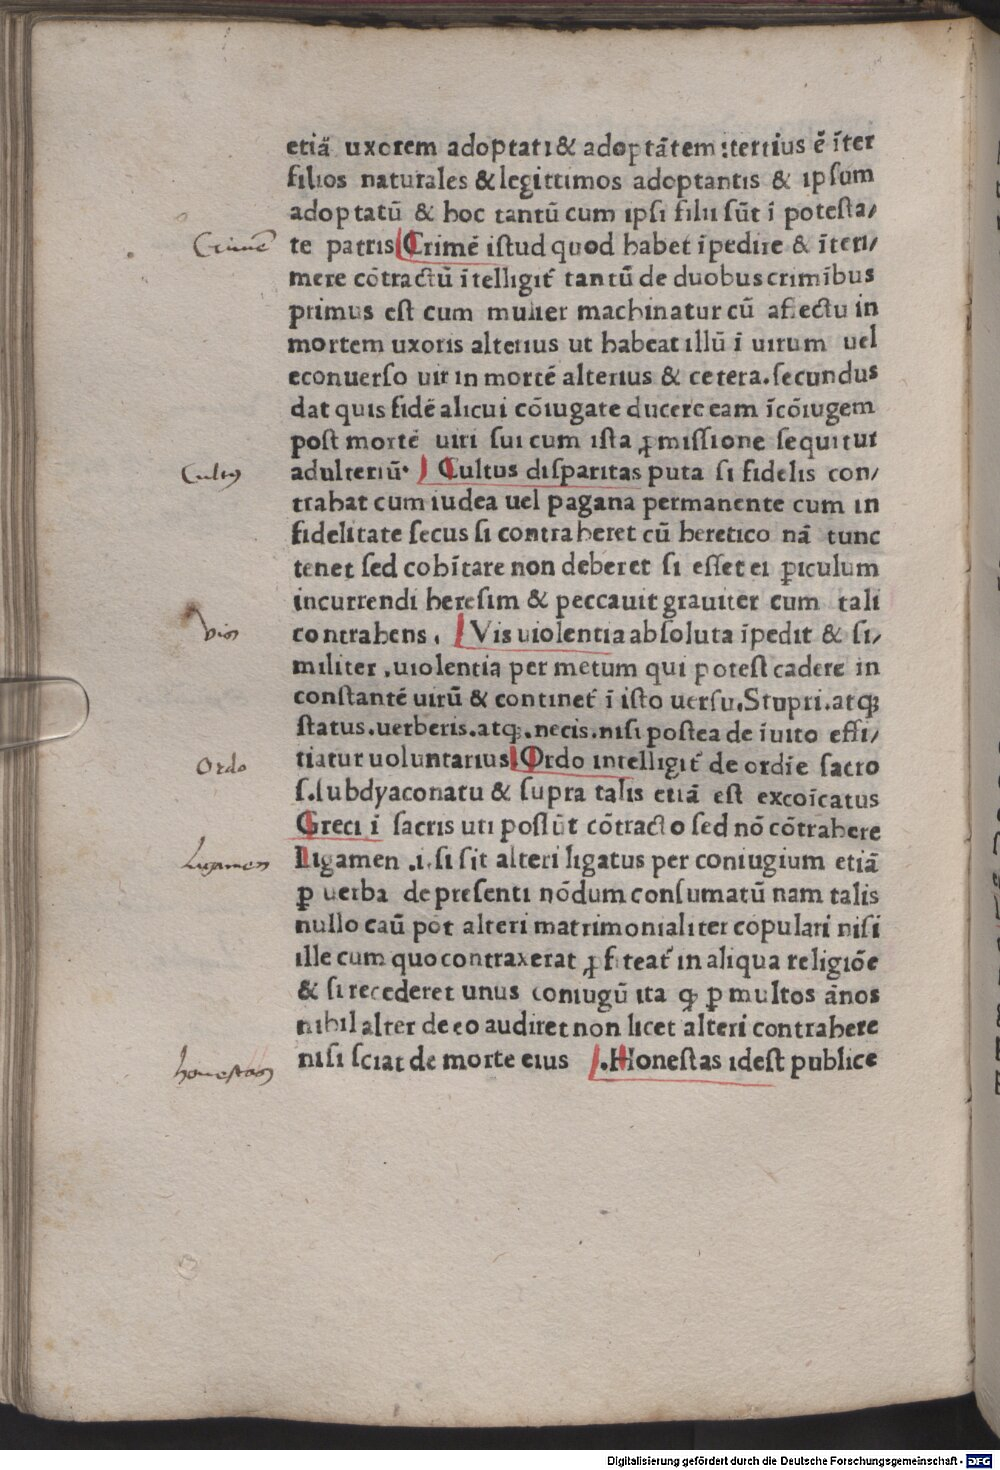 etiā uxorem adoptati & adoptātem : tertius ē īter
filios naturales & legittimos adoptantis & ipsum
adoptatū & hoc tantū cum ipsi filii sūt ī potesta/
Crimē
te patris Crimē istud quod habet īpedire & īteri/
mere cōtractū ītelligit᷑ tantū de duobus crimībus
primus est cum mulier machinatur cū affectu in
mortem uxoris alterius ut habeat illū ī uirum uel
econuerso uir in mortē alterius & cetera. secundus
dat quis fidē alicui cōiugate ducere eam īcōiugem
post mortē uiri sui cum ista ꝓmissione sequitur
Cultus
adulteriū. Cultus disparitas puta si fidelis con/
trahat cum iudea uel pagana permanente cum in
fidelitate secus si contraheret cū heretico nā tunc
tenet sed cohītare non deberet si esset ei ꝑiculum
incurrendi heresim & peccauit grauiter cum tali
contrahens. Vis uiolentia absoluta īpedit & si/
militer .uiolentia per metum qui potest cadere in
constantē uirū & continet᷑ ī isto uersu. Stupri. atqꝫ
status. uerberis. atqꝫ. necis. nisi postea de īuito effi/
Ordo
tiatur uoluntarius Ordo intelligit᷑ de ordīe sacro
s. subdyaconatu & supra talis etiā est excoīcatus
Greci ī sacris uti possūt cōtracto sed nō cōtrahere
Ligamen
Ligamen .i. si sit alteri ligatus per coniugium etiā
ꝑ uerba de presenti nōdum consumatū nam talis
nullo caū pot alteri matrimonialiter copulari nisi
ille cum quo contraxerat ꝓfiteat᷑ in aliqua religiōe
& si recederet unus coniugū ita qꝫ ꝑ multos ānos
nihil alter de eo audiret non licet alteri contrahere
honestas
nisi sciat de morte eius .Honestas idest publice
Digitalisierung gefördert durch die Deutsche Forschungsgemeinschaft - DFG